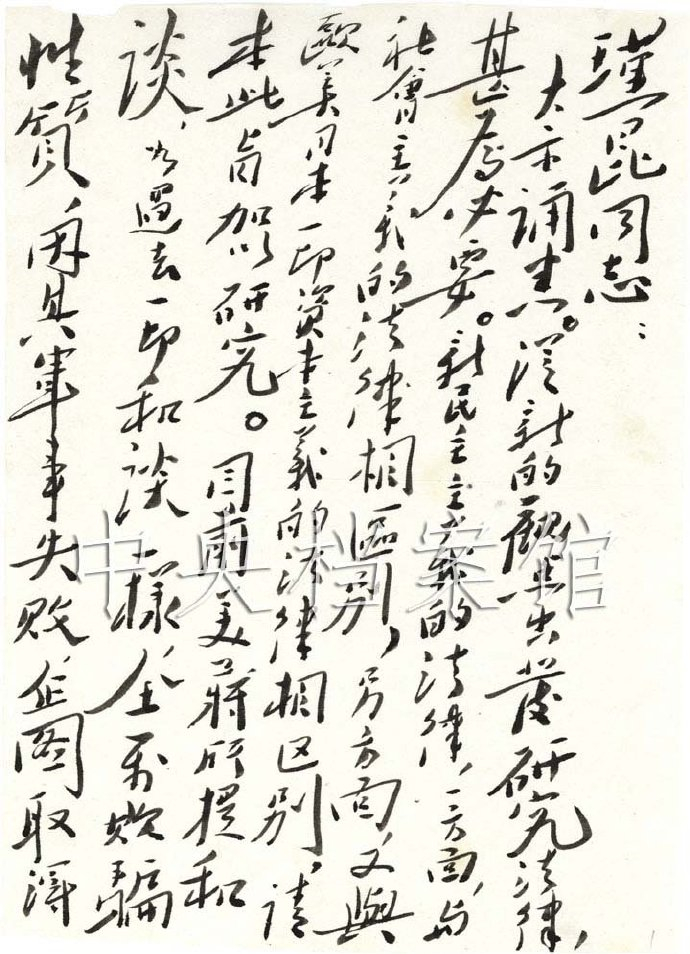 瑾昆同志：
大示诵悉。從新的觀点出發研究法律，
甚为必要。新民主主义的法律，一方面，与
社會主义的法律相區别，另方面又與
歐美日本一切资本主義的法律相区别，请
本此旨加以研究。目前美蔣所提和
谈，如過去一切和谈一樣全系欺騙
性質，因其軍事失败企圖取得
中央档案馆